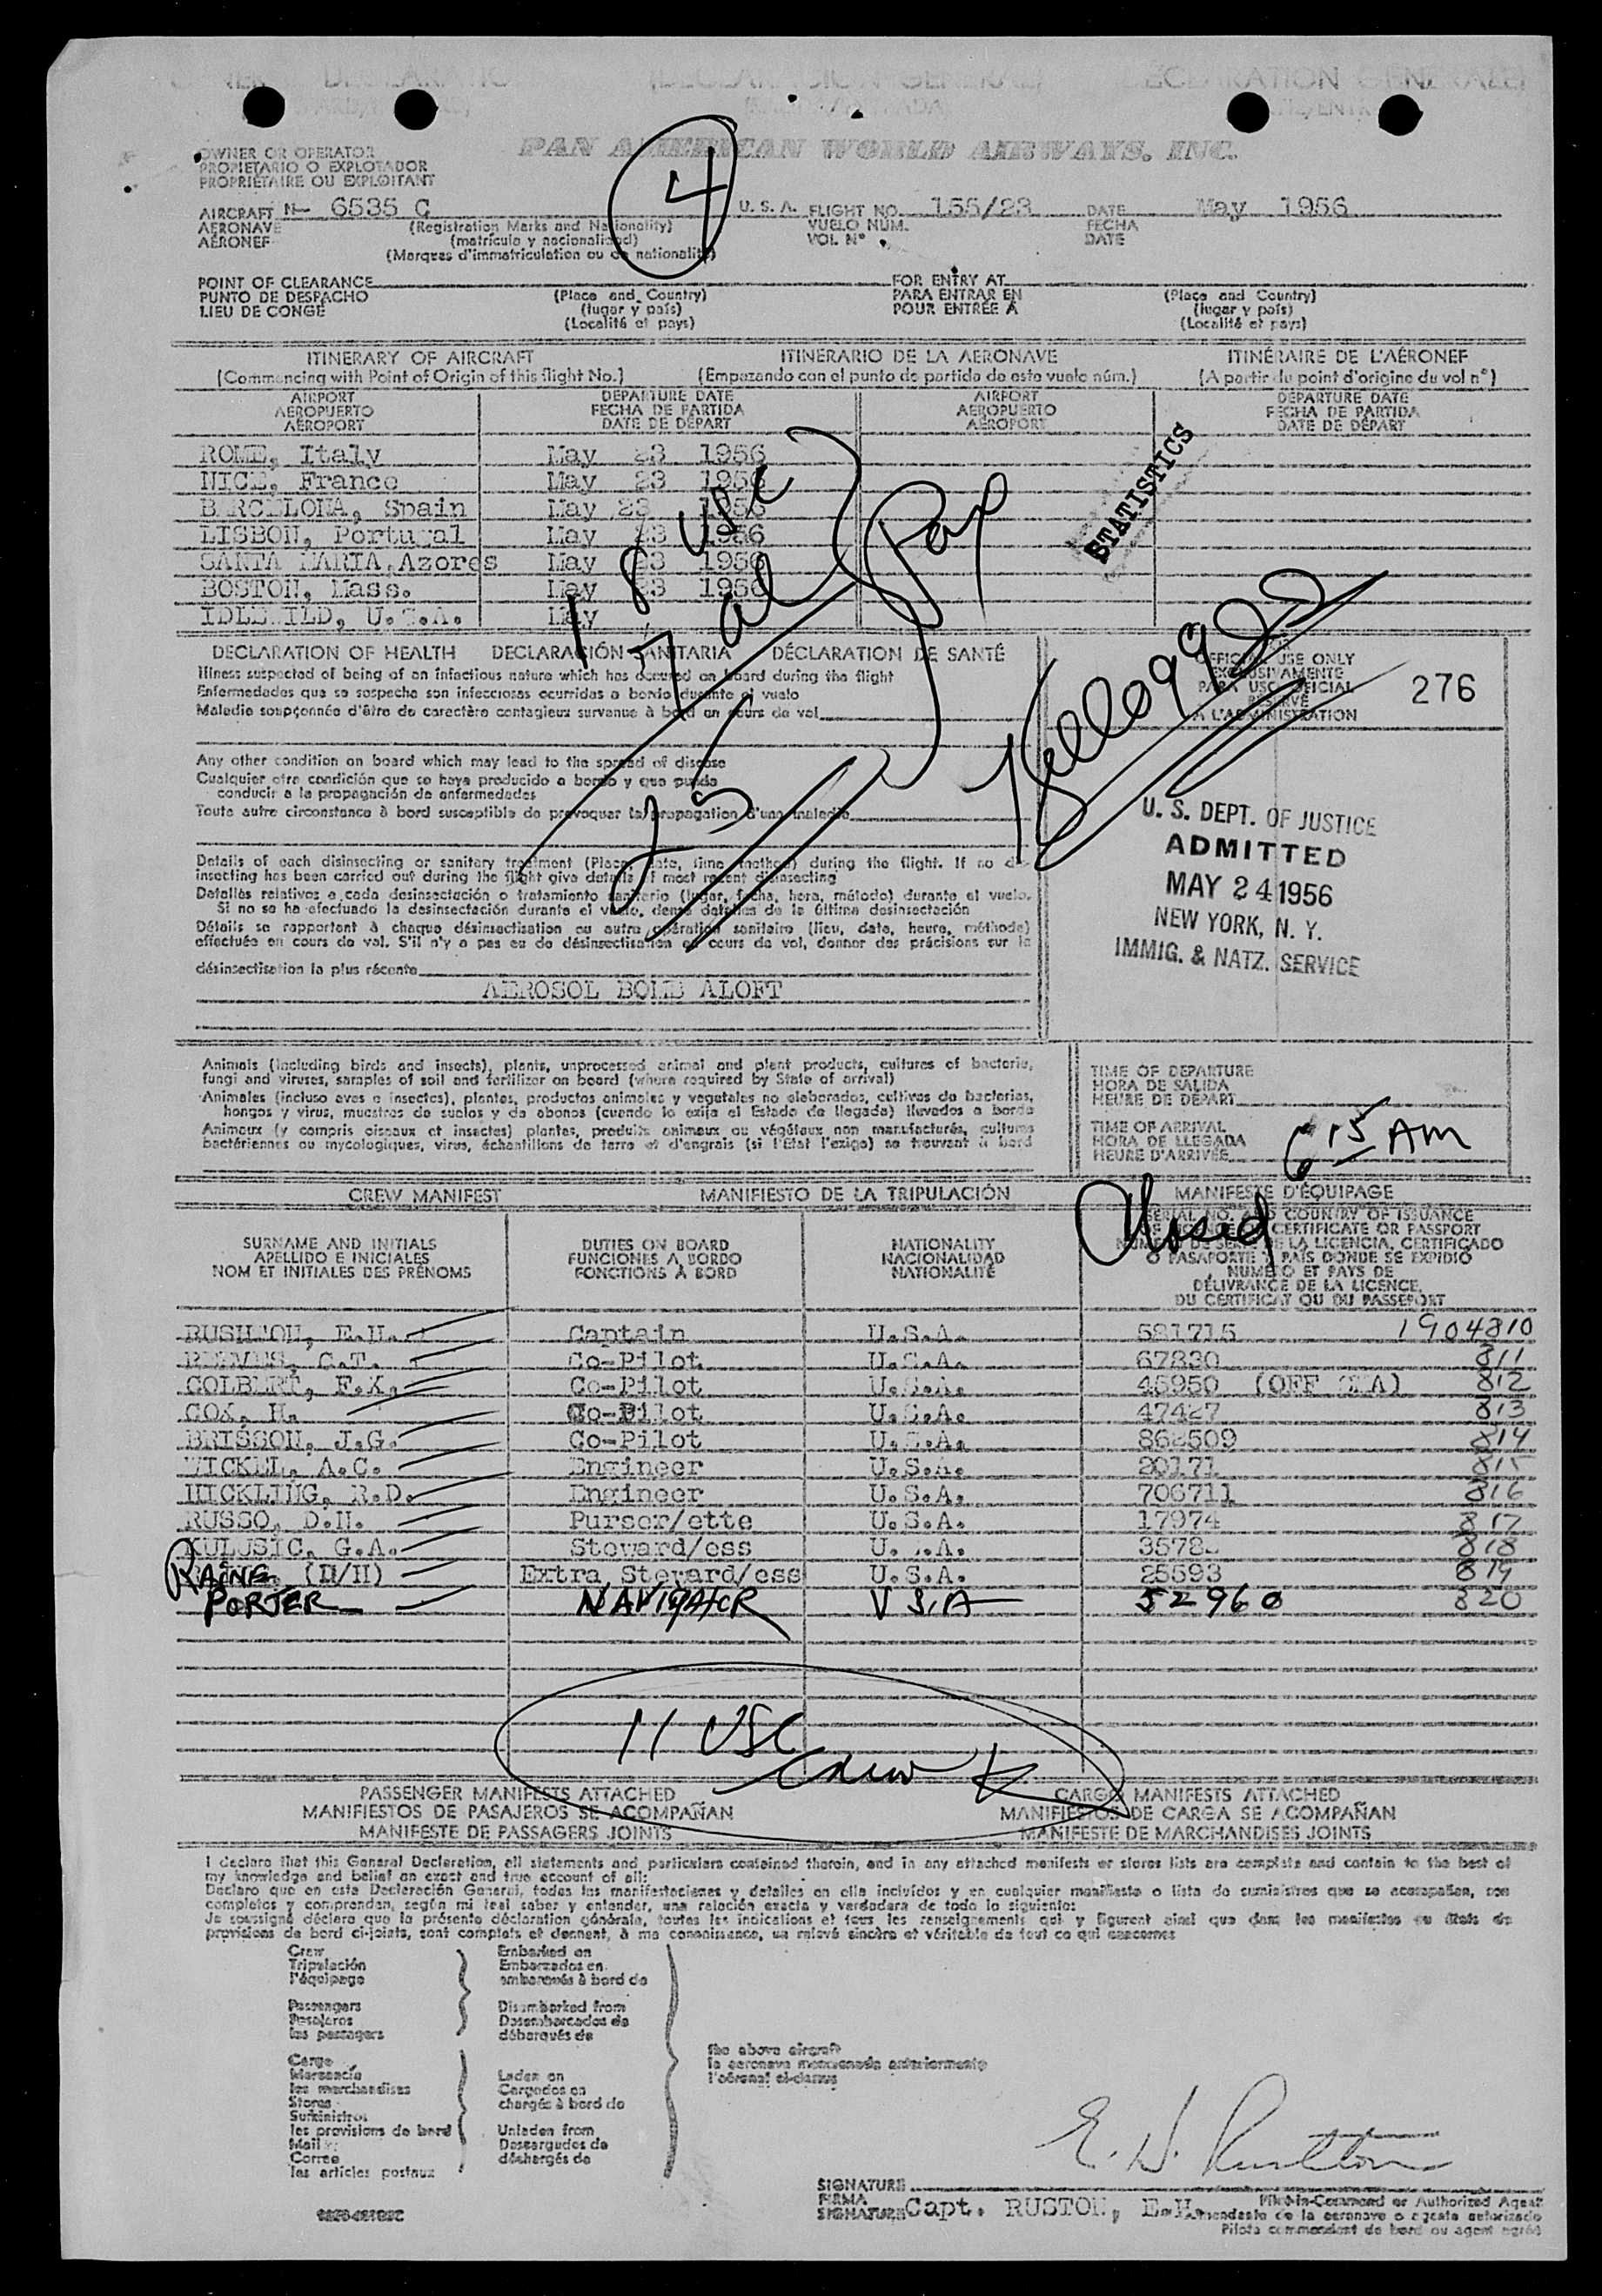 PAN AMERICAN WORLD AIRWAYS, INC.
OWNER OR OPERATOR
PROPIETARIO O EXPLOTADOR
PROPRIÉTAIRE OU EXPLOITANT
4
AIRCRAFT N- 6535 C U. S. A. FLIGHT NO. 155/23 DATE May 1956
AERONAVE (Registration Marks and Nationality) VUELO NUM. FECHA
AÉRONEF (matrícula y nacionalidad) VOL Nº DATE
(Marques d'immatriculation ou de nationalité)
POINT OF CLEARANCE FOR ENTRY AT
PUNTO DE DESPACHO (Place and Country) PARA ENTRAR EN (Place and Country)
LIEU DE CONGÉ (lugar y país) POUR ENTRÉE À (lugar y país)
(Localité et pays) (Localité et pays)
ITINERARY OF AIRCRAFT ITINERARIO DE LA AERONAVE ITINÉRAIRE DE L'AÉRONEF
(Commencing with Point of Origin of this flight No.) (Empezando con el punto de partida de este vuelo núm.) (A partir du point d'origine du vol nº)
AIRPORT DEPARTURE DATE AIRPORT DEPARTURE DATE
AEROPUERTO FECHA DE PARTIDA AEROPUERTO FECHA DE PARTIDA
AÉROPORT DATE DE DÉPART AÉROPORT DATE DE DÉPART
ROME, Italy May 23 1956
NICE, France May 23 1956
BARCELONA, Spain May 23 1956
LISBON, Portugal May 23 1956
SANTA MARIA, Azores May 23 1956
BOSTON, Mass. May 23 1956
IDLEWILD, U.S.A. May
STATISTICS
18 USC
7 al
25 Pax
Kellogg
DECLARATION OF HEALTH DECLARACIÓN SANITARIA DÉCLARATION DE SANTÉ
Illness suspected of being of an infectious nature which has occured on board during the flight
Enfermedades que se sospecha son infecciosas ocurridas a bordo durante el vuelo
Maladie soupçonnée d'être de caractère contagieux survenue à bord en cours de vol
FOR
OFFICIAL USE ONLY
EXCLUSIVAMENTE
PARA USO OFICIAL
RÉSERVÉ
A L'ADMINISTRATION
276
Any other condition on board which may lead to the spread of disease
Cualquier otra condición que se haya producido a bordo y que pueda
conducir a la propagación de enfermedades
Toute autre circonstance à bord susceptible de provoquer la propagation d'une maladie
U. S. DEPT. OF JUSTICE
ADMITTED
MAY 24 1956
NEW YORK, N. Y.
IMMIG. & NATZ. SERVICE
Details of each disinsecting or sanitary treatment (Place, date, time, method) during the flight. If no dis-
insecting has been carried out during the flight give details of most recent disinsecting
Detalles relativos a cada desinsectación o tratamiento sanitario (lugar, fecha, hora, método) durante el vuelo.
Si no se ha efectuado la desinsectación durante el vuelo, dense detalles de la última desinsectación
Détails se rapportant à chaque désinsectisation ou autre opération sanitaire (lieu, date, heure, méthode)
effectuée en cours de vol. S'il n'y a pas eu de désinsectisation en cours de vol, donner des précisions sur la
désinsectisation la plus récente
AEROSOL BOMB ALOFT
Animals (including birds and insects), plants, unprocessed animal and plant products, cultures of bacteria,
fungi and viruses, samples of soil and fertilizer on board (where required by State of arrival)
Animales (incluso aves e insectos), plantas, productos animales y vegetales no elaborados, cultivos de bacterias,
hongos y virus, muestras de suelos y de abonos (cuando lo exija el Estado de llegada) llevados a bordo
Animaux (y compris oiseaux et insectes) plantes, produits animaux ou végétaux non manufacturés, cultures
bactériennes ou mycologiques, virus, échantillons de terre et d'engrais (si l'État l'exige) se trouvant à bord
TIME OF DEPARTURE
HORA DE SALIDA
HEURE DE DÉPART
TIME OF ARRIVAL
HORA DE LLEGADA
HEURE D'ARRIVÉE 6 15 AM
Closed
CREW MANIFEST MANIFIESTO DE LA TRIPULACIÓN MANIFESTE D'ÉQUIPAGE
SURNAME AND INITIALS DUTIES ON BOARD NATIONALITY SERIAL NO. AND COUNTRY OF ISSUANCE
APELLIDO E INICIALES FUNCIONES A BORDO NACIONALIDAD CERTIFICATE OR PASSPORT
NOM ET INITIALES DES PRÉNOMS FONCTIONS À BORD NATIONALITÉ NUMERO DE SERIE DE LA LICENCIA, CERTIFICADO
O PASAPORTE Y PAÍS DONDE SE EXPIDIÓ
NUMÉRO ET PAYS DE
DÉLIVRANCE DE LA LICENCE,
DU CERTIFICAT OU DU PASSEPORT
E.H. Captain U.S.A. 581715 1904810
REEVES, C.T. Co-Pilot U.S.A. 67830 811
COLBERT, F.K. Co-Pilot U.S.A. 45950 (OFF SMA) 812
COX, H. Co-Pilot U.S.A. 47427 813
BRISSON, J.G. Co-Pilot U.S.A. 862509 814
WICKEL, A.C. Engineer U.S.A. 20171 815
HICKLING, R.D. Engineer U.S.A. 706711 816
RUSSO, D.H. Purser/ette U.S.A. 17974 817
KULUSIC, G.A. Steward/ess U.S.A. 818
RAINE (II/II) Extra Steward/ess U.S.A. 25593 819
PORTER NAVIGATOR U S.A 52960 820
11 USC
Crew K
PASSENGER MANIFESTS ATTACHED CARGO MANIFESTS ATTACHED
MANIFIESTOS DE PASAJEROS SE ACOMPAÑAN MANIFIESTOS DE CARGA SE ACOMPAÑAN
MANIFESTE DE PASSAGERS JOINTS MANIFESTE DE MARCHANDISES JOINTS
I declare that this General Declaration, all statements and particulars contained therein, and in any attached manifests or stores lists are complete and contain to the best of
my knowledge and belief an exact and true account of all:
Declaro que en esta Declaración General, todas las manifestaciones y detalles en ella incluidos y en cualquier manifiesto o lista de suministros que se acompañan, son
completos y comprenden, según mi leal saber y entender, una relación exacta y verdadera de todo lo siguiente:
Je soussigné déclare que la présente déclaration générale, toutes les indications et tous les renseignements qui y figurent ainsi que dans les manifestes ou états de
provisions de bord ci-joints, sont complets et donnent, à ma connaissance, un relevé sincère et véritable de tout ce qui concerne
Crew Embarked on
Tripulación Embarcados en
l'équipage embarqués à bord de
Passengers Disembarked from
Pasajeros Desembarcados de
les passagers débarqués de
the above aircraft
la aeronave mencionada anteriormente
l'aéronef ci-dessus
Cargo
Mercancía Laden on
les marchandises Cargados en
Stores chargés à bord de
Suministros
les provisions de bord Unladen from
Mail Descargados de
Correo déchargés de
les articles postaux
E. H. Rushton
SIGNATURE
FIRMA
SIGNATURE Capt. RUSTON, E.H. Pilot-in-Command or Authorized Agent
Comandante de la aeronave o agente autorizado
Pilote commandant de bord ou agent agréé